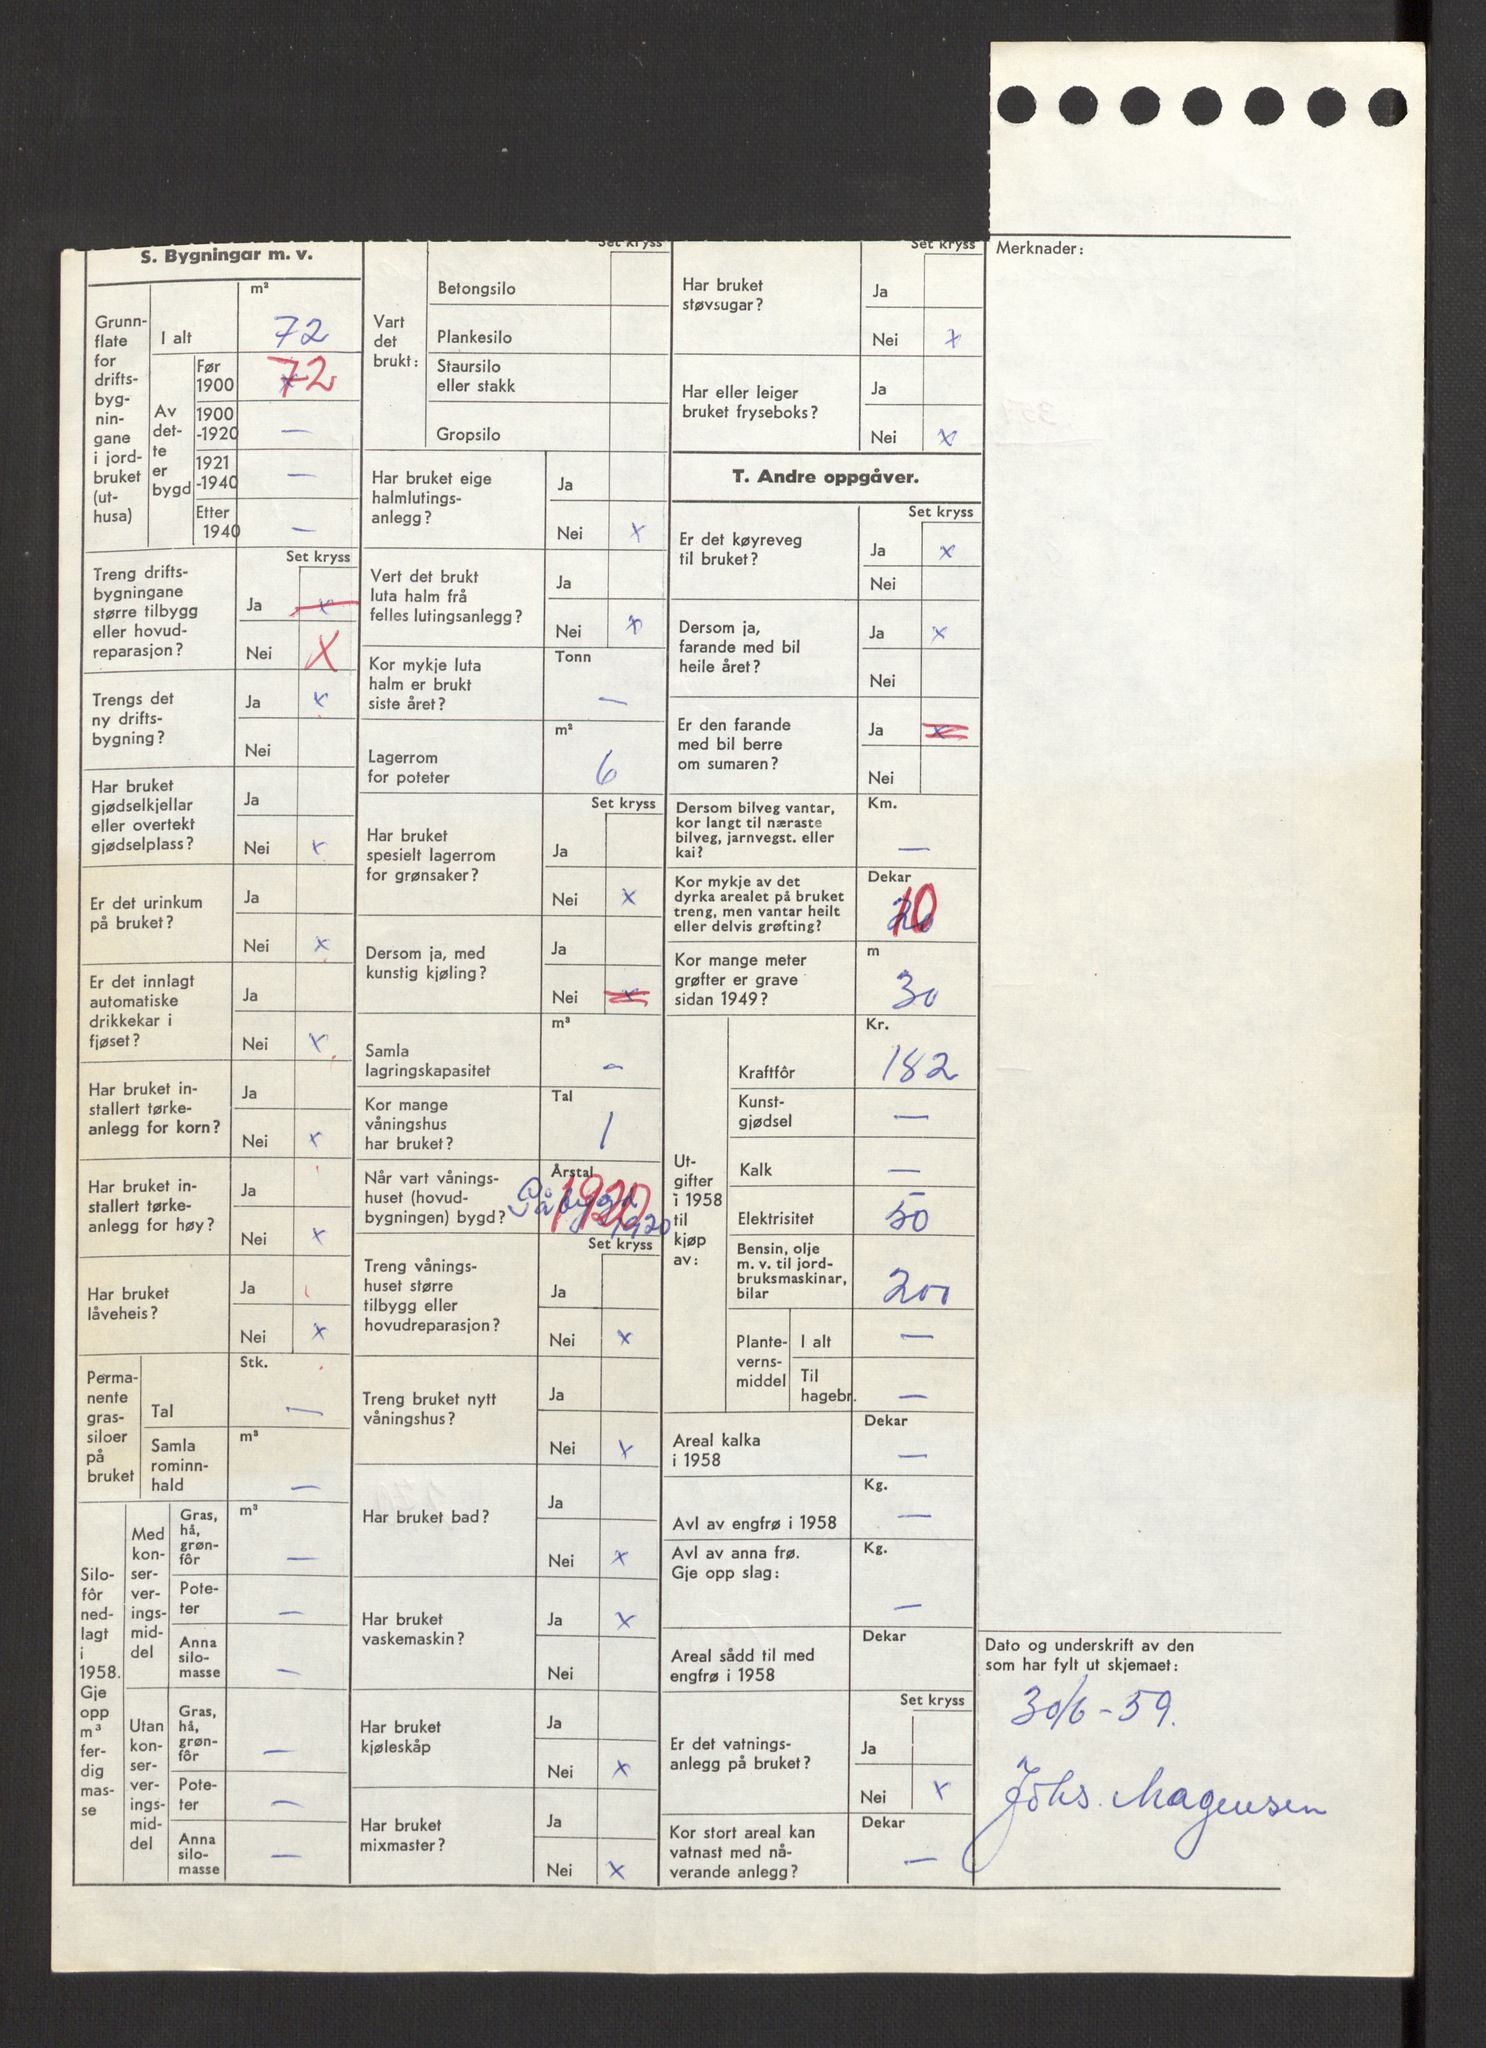 S. Bygningar m. v.
Grunn-
flate
for
drifts-
byg-
nin-
gane
i jord-
bruket
(ut-
husa)
m²
I alt
72
Av
det-
te
er
bygd
Før
1900
72
1900
-1920 —
1921
-1940 —
Etter
1940 —
Set kryss
Treng drifts-
bygningane
større tilbygg
eller hovud-
reparasjon?
Ja x
Nei X
Trengs det
ny drifts-
bygning?
Ja x
Nei
Har bruket
gjødselkjellar
eller overtekt
gjødselplass?
Ja
Nei x
Er det urinkum
på bruket?
Ja
Nei x
Er det innlagt
automatiske
drikkekar i
fjøset?
Ja
Nei x
Har bruket in-
stallert tørke-
anlegg for korn?
Ja
Nei x
Har bruket in-
stallert tørke-
anlegg for høy?
Ja
Nei x
Har bruket
låveheis?
Ja
Nei x
Perma-
nente
gras-
siloer
på
bruket
Stk.
Tal —
m³
Samla
rominn-
hald —
Silo-
fôr
ned-
lagt
i
1958.
Gje
opp
m³
fer-
dig
mas-
se
Med
kon-
ser-
ver-
ings-
mid-
del
m³
Gras,
hå,
grøn-
fôr —
Pote-
ter —
Anna
silo-
masse —
Utan
kon-
ser-
ver-
ings-
mid-
del
Gras,
hå,
grøn-
fôr —
Pote-
ter —
Anna
silo-
masse —
Set kryss
Vart
det
brukt:
Betongsilo
Plankesilo
Staursilo
eller stakk
Gropsilo
Har bruket eige
halmlutings-
anlegg?
Ja
Nei x
Vert det brukt
luta halm frå
felles lutingsanlegg?
Ja
Nei x
Kor mykje luta
halm er brukt
siste året?
Tonn
—
Lagerrom
for poteter
m²
6
Set kryss
Har bruket
spesielt lagerrom
for grønsaker?
Ja
Nei x
Dersom ja, med
kunstig kjøling?
Ja
Nei x
Samla
lagringskapasitet
m³
—
Kor mange
våningshus
har bruket?
Tal
1
Når vart vånings-
huset (hovud-
bygningen) bygd?
Årstal
1920
Påbygd
1920
Set kryss
Treng vånings-
huset større
tilbygg eller
hovudreparasjon?
Ja
Nei x
Treng bruket nytt
våningshus?
Ja
Nei x
Har bruket bad?
Ja
Nei x
Har bruket
vaskemaskin?
Ja x
Nei
Har bruket
kjøleskåp
Ja
Nei x
Har bruket
mixmaster?
Ja
Nei x
Set kryss
Har bruket
støvsugar?
Ja
Nei x
Har eller leiger
bruket fryseboks?
Ja
Nei x
T. Andre oppgåver.
Set kryss
Er det køyreveg
til bruket?
Ja x
Nei
Dersom ja,
farande med bil
heile året?
Ja x
Nei
Er den farande
med bil berre
om sumaren?
Ja x
Nei
Dersom bilveg vantar,
kor langt til næraste
bilveg, jarnvegst. eller
kai?
Km.
—
Kor mykje av det
dyrka arealet på bruket
treng, men vantar heilt
eller delvis grøfting?
Dekar
20
10
Kor mange meter
grøfter er grave
sidan 1949?
m
30
Ut-
gifter
i 1958
til
kjøp
av:
Kr.
Kraftfôr 182
Kunst-
gjødsel —
Kalk —
Elektrisitet 50
Bensin, olje
m. v. til jord-
bruksmaskinar,
bilar 200
Plante-
verns-
middel
I alt —
Til
hagebr. —
Areal kalka
i 1958
Dekar
—
Avl av engfrø i 1958
Kg.
—
Avl av anna frø.
Gje opp slag:
Kg.
—
Areal sådd til med
engfrø i 1958
Dekar
Set kryss
Er det vatnings-
anlegg på bruket?
Ja
Nei x
Kor stort areal kan
vatnast med nå-
verande anlegg?
Dekar
—
Merknader:
Dato og underskrift av den
som har fylt ut skjemaet:
30/6-59.
Johs. Magnusen